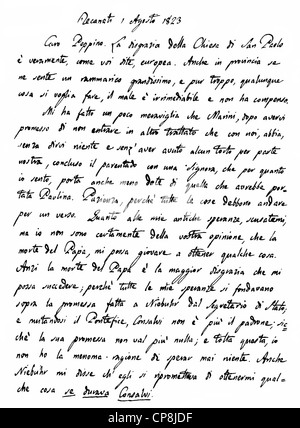 Recanati 1 Agosto 1823
Caro Peppino. La disgrazia della Chiesa di San Paolo
è veramente, come voi dite, europea. Anche in provincia se
ne sente un rammarico grandissimo, e pur troppo, qualunque
cosa si voglia fare, il male è irrimediabile e non ha compenso.
Mi ha fatto un poco meraviglia che Marini, dopo aversi
promesso di non entrare in altro trattato che con noi, abbia,
senza dirsi niente e senz'aver avuto alcun torto per parte
nostra, concluso il parentado con una Signora, che per quanto
io sento, porta anche meno dote di quella che avrebbe por-
tata Paolina. Pazienza, perchè tutte le cose debbono andare
per un verso. Quanto alle mie antiche speranze, scusatemi,
ma io non sono certamente della vostra opinione, che la
morte del Papa, mi possa giovare a ottener qualche cosa.
Anzi la morte del Papa è la maggior disgrazia che mi
possa succedere; perchè tutte le mie speranze si fondavano
sopra la promessa fatta a Niebuhr dal Segretario di Stato;
e mutandosi il Pontefice, Consalvi non è più il padrone; sic-
chè la sua promessa non val più nulla; e tolta questa, io
non ho la menoma ragione di sperar mai niente. Anche
Niebuhr mi disse ch'egli si riprometteva di ottenermi qual-
che cosa se durava Consalvi.
alamy
CP8JDF
www.alamy.com